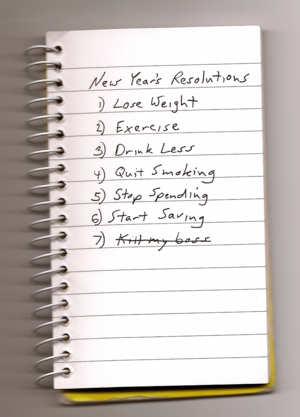 New Year's Resolutions
1) Lose Weight
2) Exercise
3) Drink Less
4) Quit Smoking
5) Stop Spending
6) Start Saving
7) Kill my boss